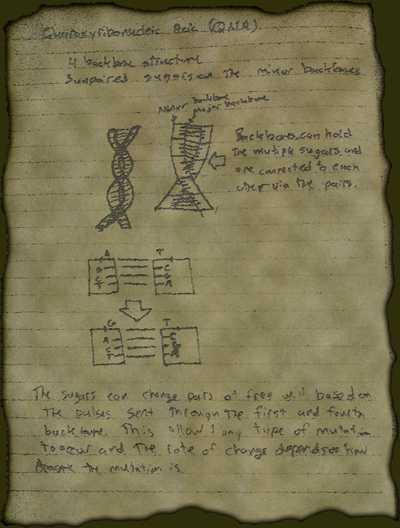 (QNA)
4 backbone structure
sugars on the minor backbones
Minor backbone
major backbone
Backbones can hold
the multiple sugars and
are connected to each
other via the pairs.
A T
G C
C G
T A
G T
A C
C
T A
The sugars can change pairs at free will based on
the pulses sent through the first and fourth
backbone. This allow any type of mutation
to occur and the rate of change depends on how
the mutation is